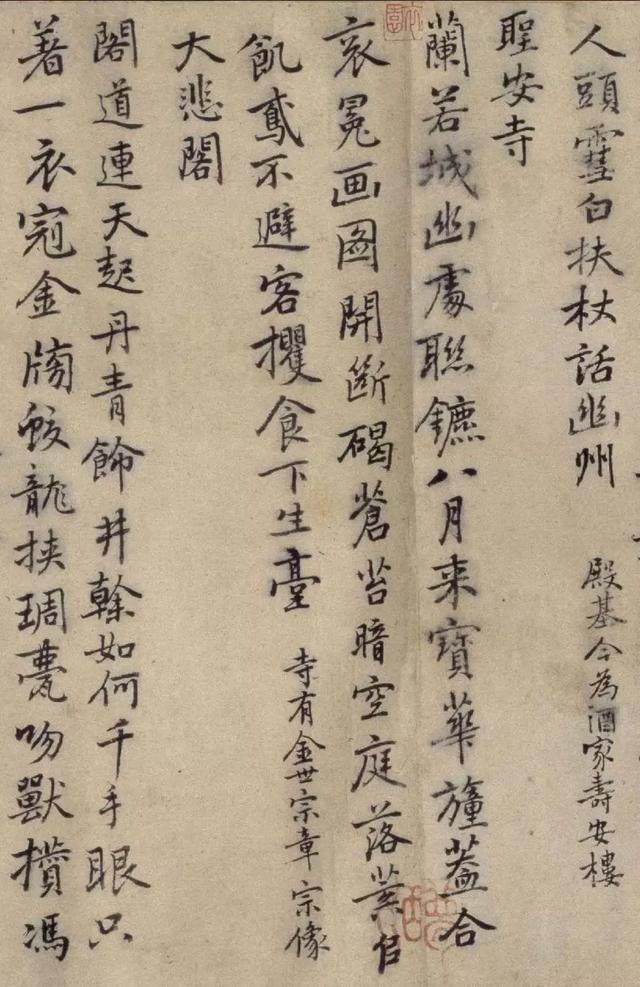 人頭䨮白扶杖話幽州 殿基今為酒家壽安樓
聖安寺
蘭若城幽處聯鑣八月来寶華幢蓋合
衮冕画圖開斷碣蒼苔暗空庭落葉
飢鳶不避客攫食下生臺 寺有金世宗章宗像
大悲閣
閣道連天起丹青餙井幹如何千手眼只
著一衣冠金牖蛟龍挾琱甍吻獸攢馮